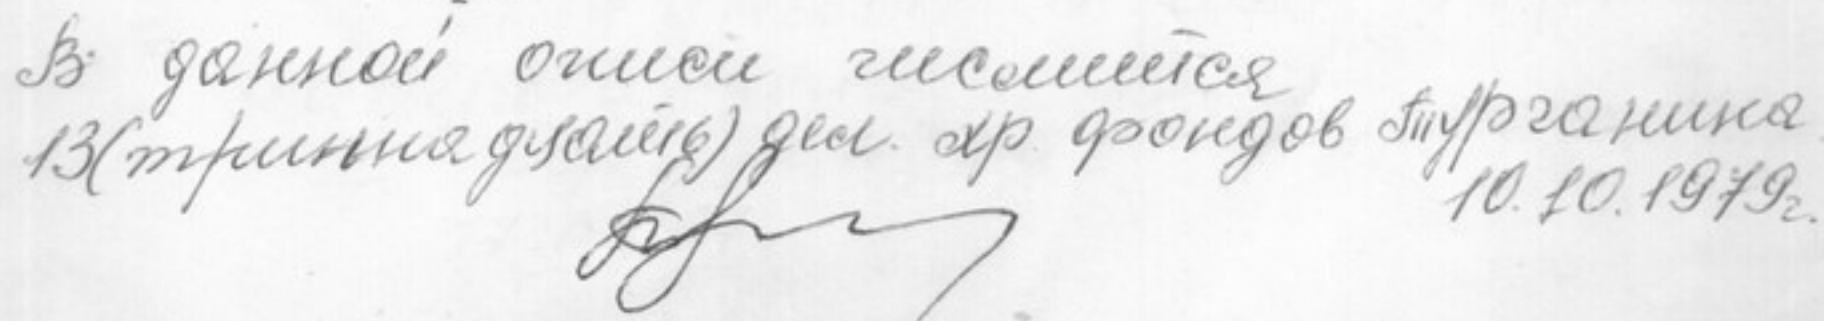 В данной описи числится
13 (тринадцать) дел. хр. фондов Турганина
10.10.1979г.